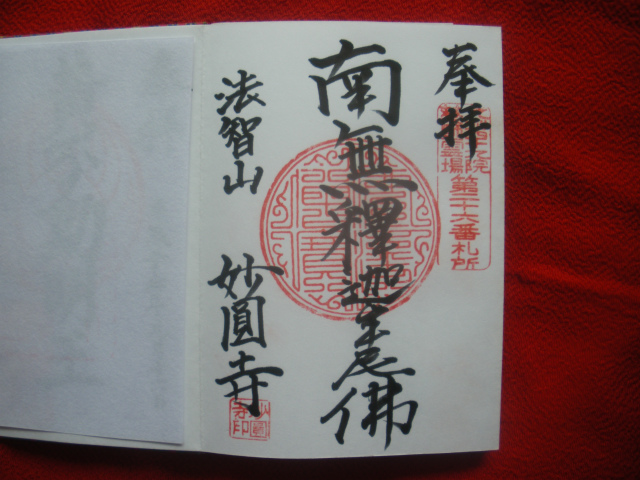 奉拝
霊場第二十六番札所
南無釋迦牟尼佛
法智山 妙圓寺
妙圓
寺印